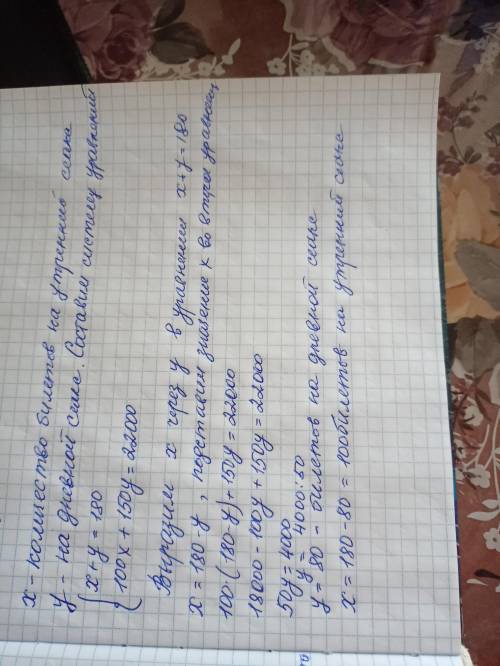 x - количество билетов на утренний сеанс
y - на дневной сеанс. Составим систему уравнений
{ x + y = 180
100x + 150y = 22000
Выразим x через y в уравнении x + y = 180
x = 180 - y, подставим значение x во второе уравнение
100·(180 - y) + 150y = 22000
18000 - 100y + 150y = 22000
50y = 4000
y = 4000:50
y = 80 - билетов на дневной сеанс
x = 180 - 80 = 100 билетов на утренний сеанс